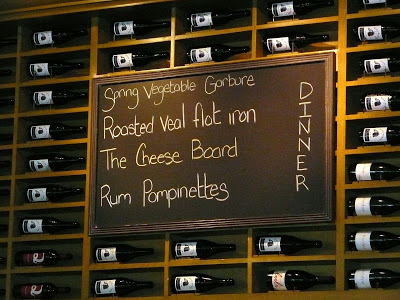 Spring Vegetable Garbure
Roasted Veal flat iron
The Cheese Board
Rum Pompinettes
DINNER